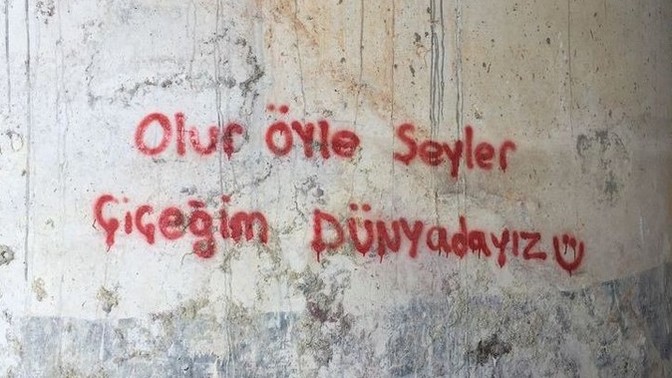 Olur öyle Şeyler
Çiçeğim DÜNyadayız